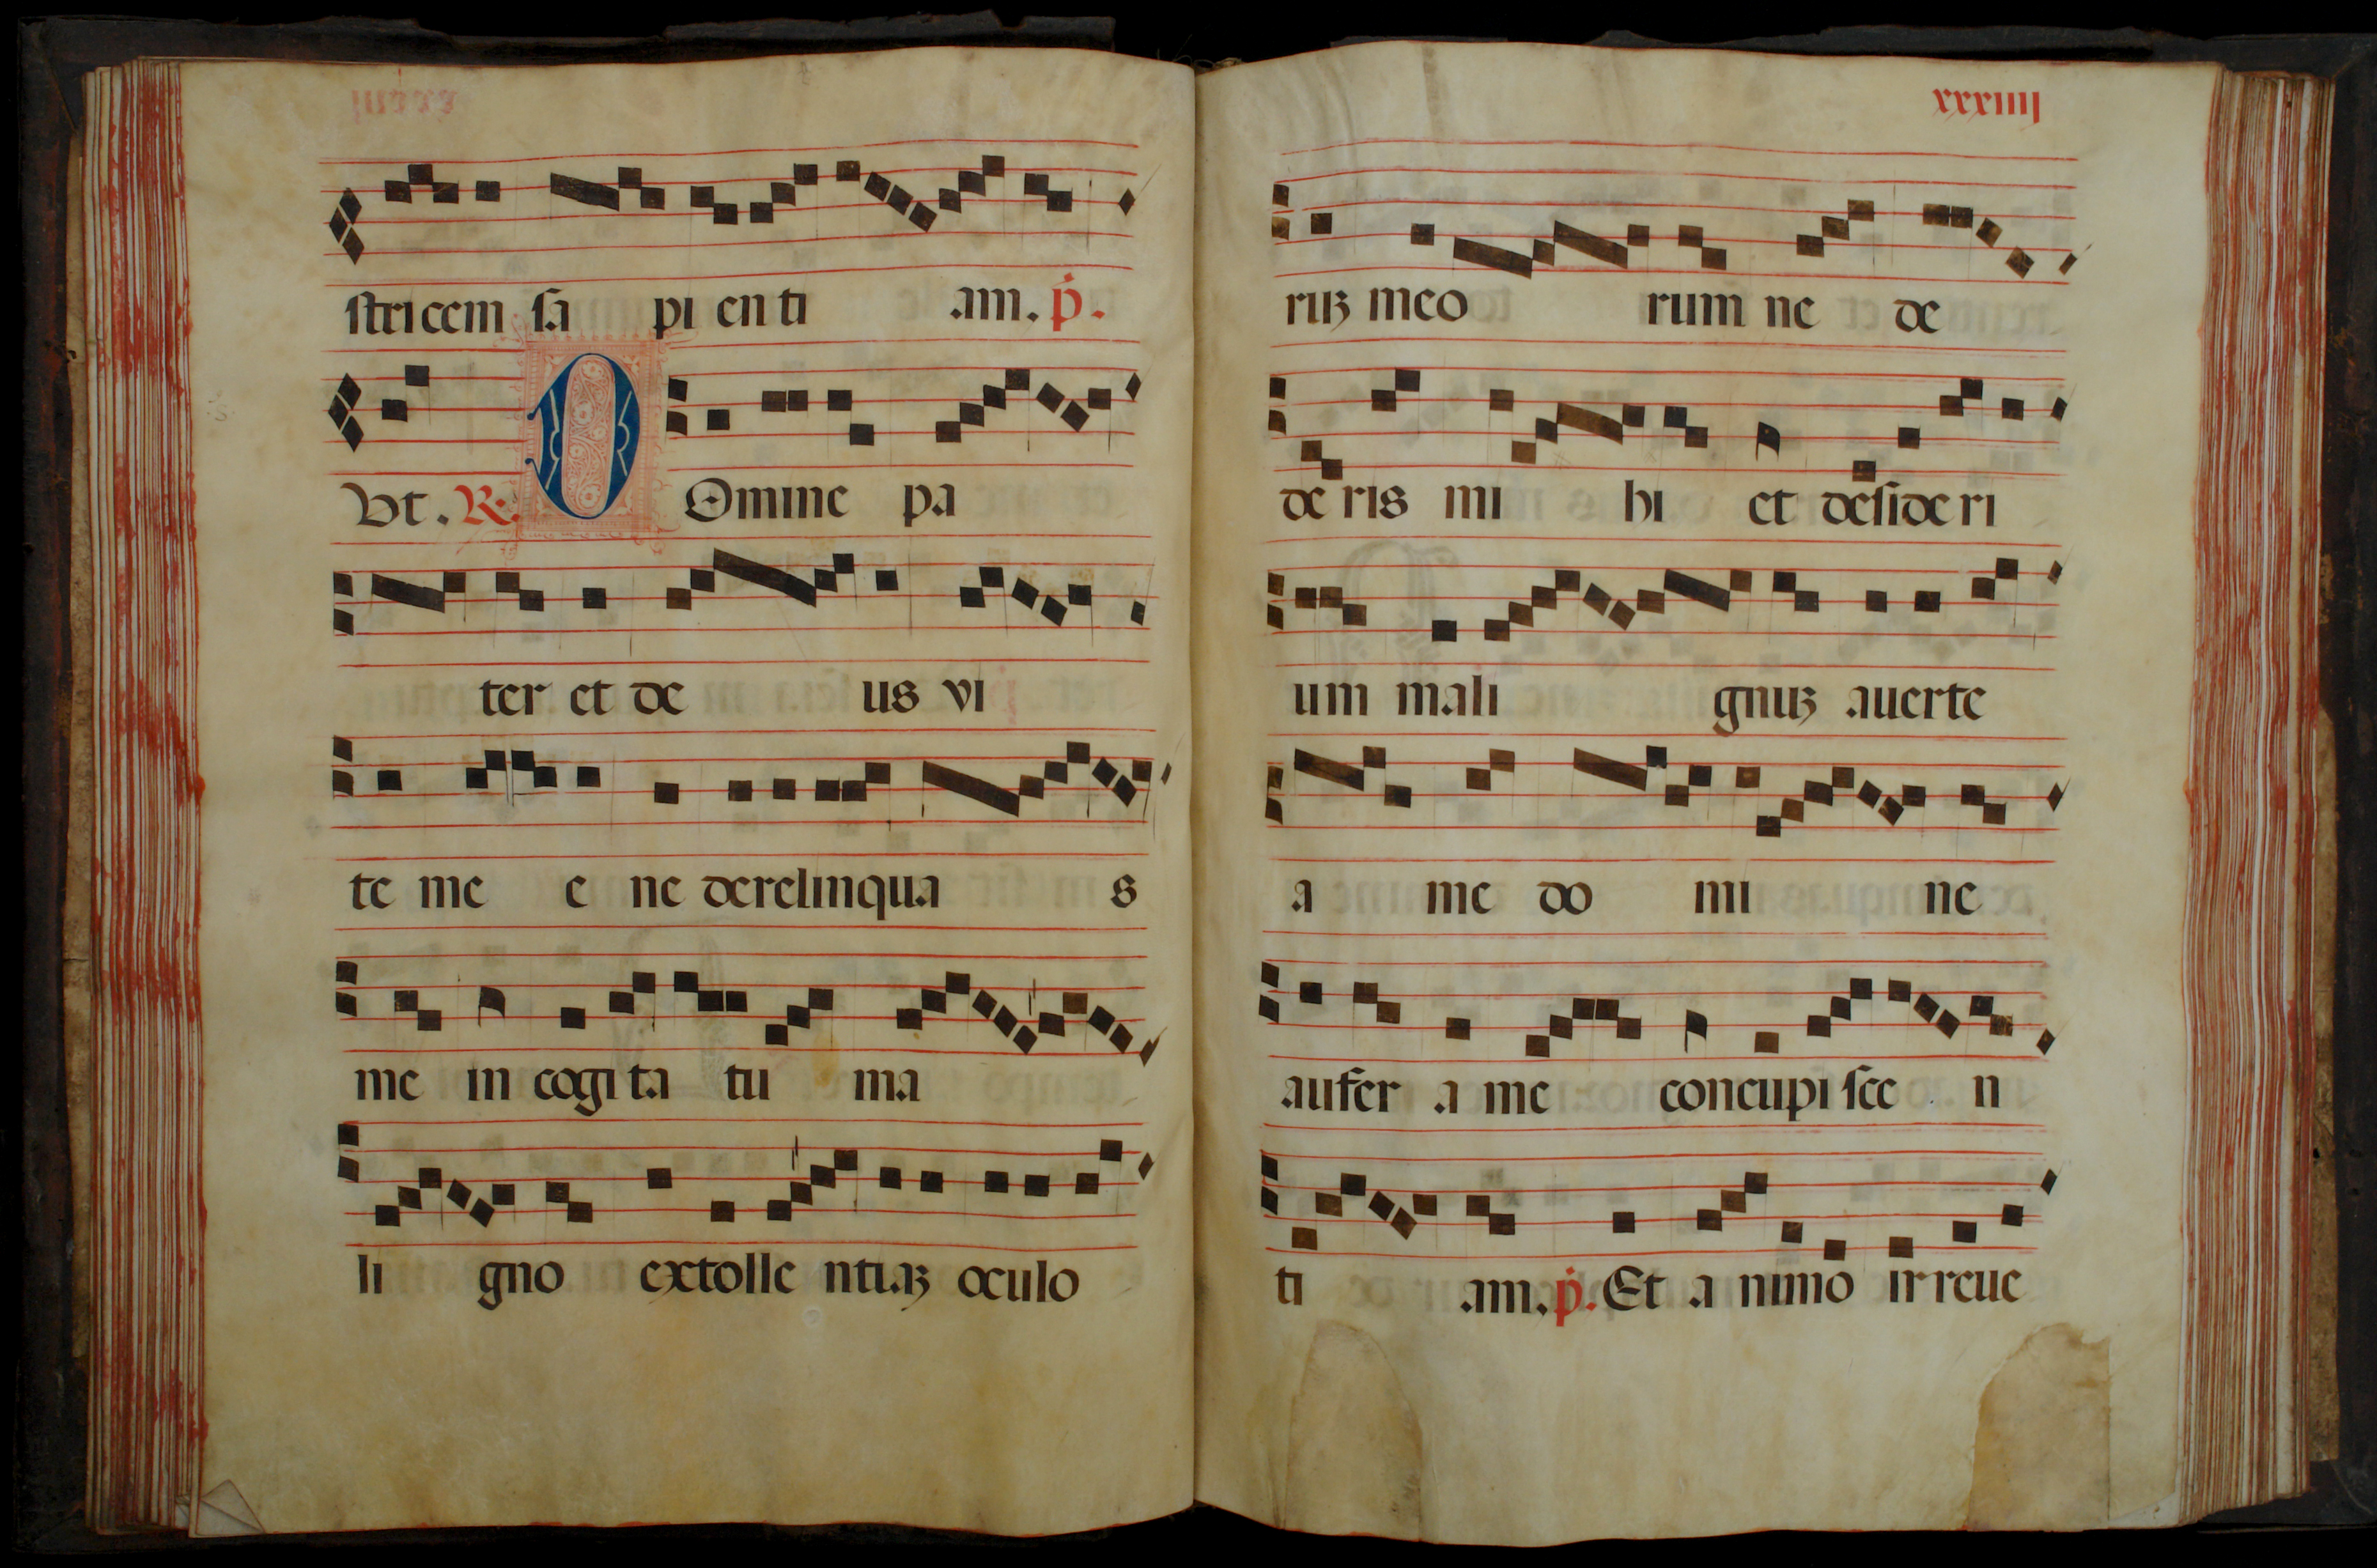 stricem sa pi enti am. ṗ.
Vt. R. DOmine pa
ter et de us vi
te me e ne derelinqua s
me in cogita tu ma
li gno extolle ntiaꝫ oculo
xxxiiij
ruꝫ meo rum ne de
de ris mi hi et desideri
um mali gnuꝫ auerte
a me do mi ne
aufer a me concupi sce n
ti am. ṗ. Et a nimo irreue